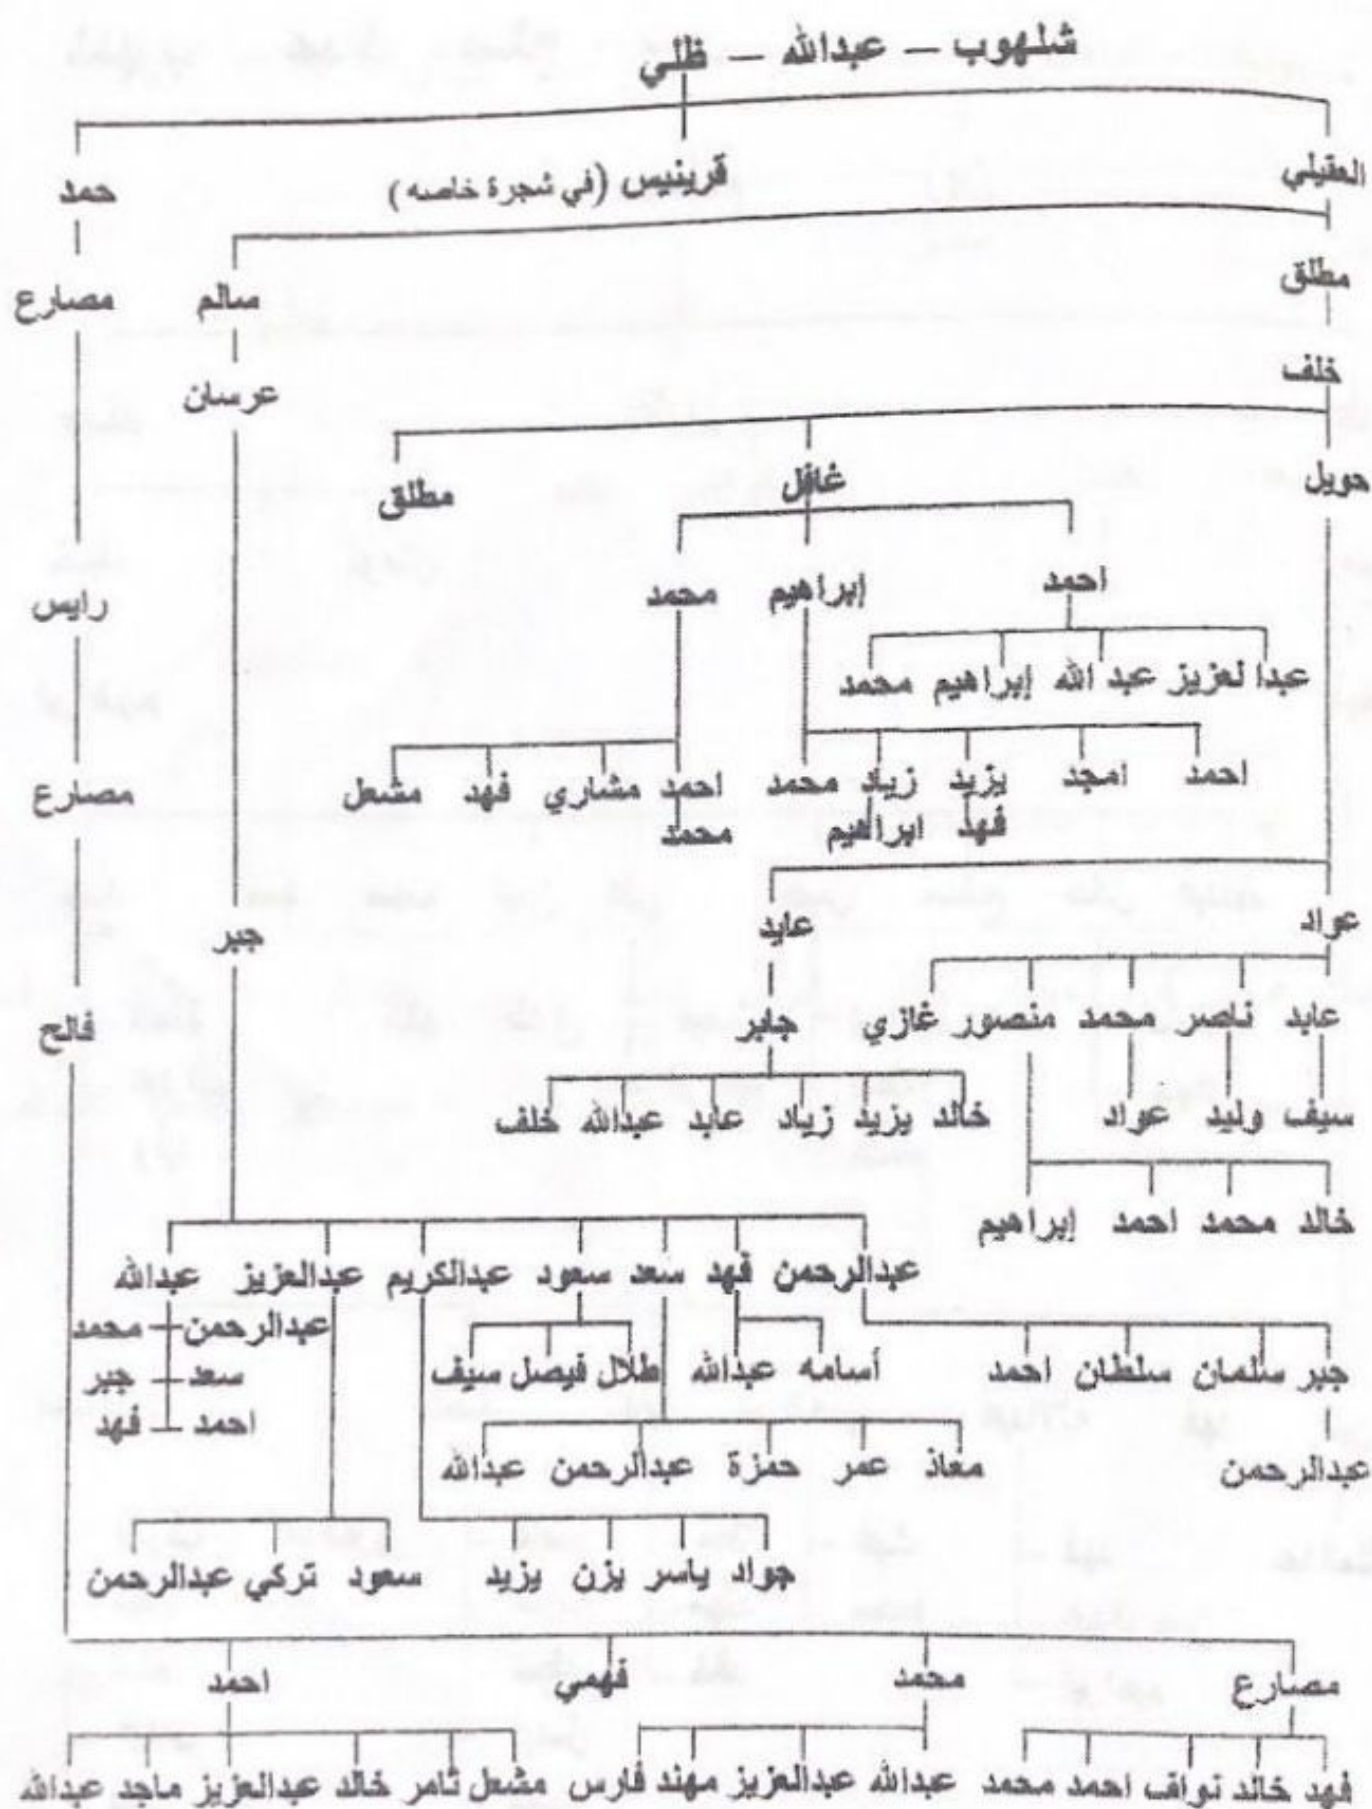 شلهوب – عبدالله – ظلي
العقيلي قرينيس (في شجرة خاصه) حمد
مطلق سالم مصارع
خلف عرسان
حويل غافل مطلق
احمد إبراهيم محمد رايس
عبدالعزيز عبد الله إبراهيم محمد
احمد امجد يزيد زياد محمد احمد مشاري فهد مشعل مصارع
فهد ابراهيم محمد
عواد عايد جبر
عابد ناصر محمد منصور غازي جابر فالح
سيف وليد عواد خالد يزيد زياد عابد عبدالله خلف
خالد محمد احمد إبراهيم
عبدالرحمن فهد سعد سعود عبدالكريم عبدالعزيز عبدالله
عبدالرحمن محمد
جبر سلمان سلطان احمد أسامه عبدالله طلال فيصل سيف سعد جبر
احمد فهد
عبدالرحمن معاذ عمر حمزة عبدالرحمن عبدالله
جواد ياسر يزن يزيد سعود تركي عبدالرحمن
مصارع محمد فهمي احمد
فهد خالد نواف احمد محمد عبدالله عبدالعزيز مهند فارس مشعل ثامر خالد عبدالعزيز ماجد عبدالله